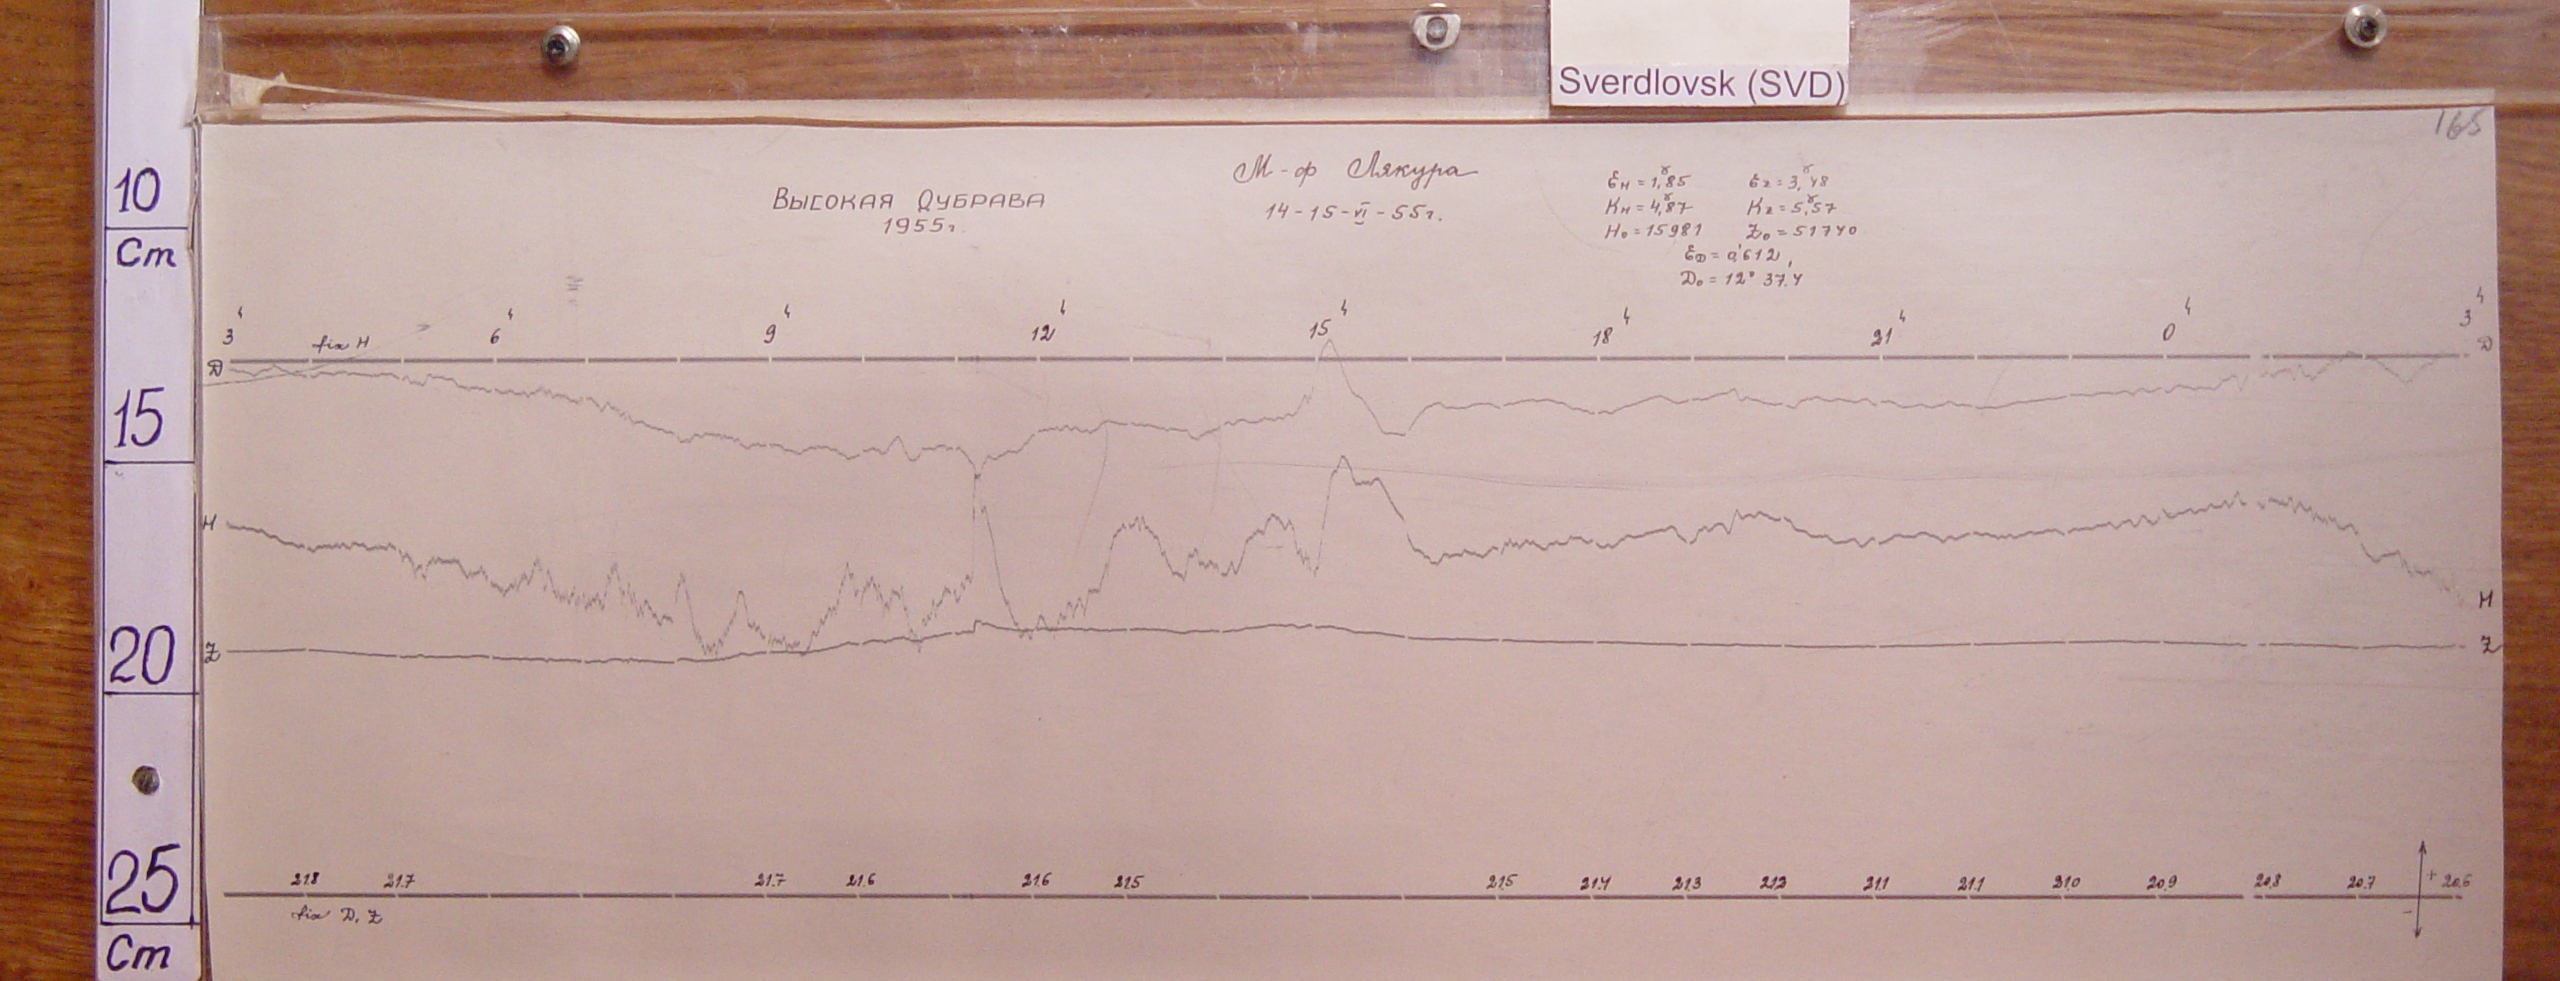 Sverdlovsk (SVD)
165
10
Cm
15
20
25
Cm
Высокая Дубрава
1955г.
М-ф Лякура
14-15-VI-55г.
Ен = 1,γ85 Еz = 3,γ48
Кн = 4,γ87 Кz = 5,γ57
Н₀ = 15981 Z₀ = 51740
ЕD = 0,'612
D₀ = 12° 37'.4
3ч 6ч 9ч 12ч 15ч 18ч 21ч 0ч 3ч
fix H
D D
H H
Z Z
21.8 21.7 21.7 21.6 21.6 21.5 21.5 21.4 21.3 21.2 21.1 21.1 21.0 20.9 20.8 20.7 + 20.6
fix D, Z -